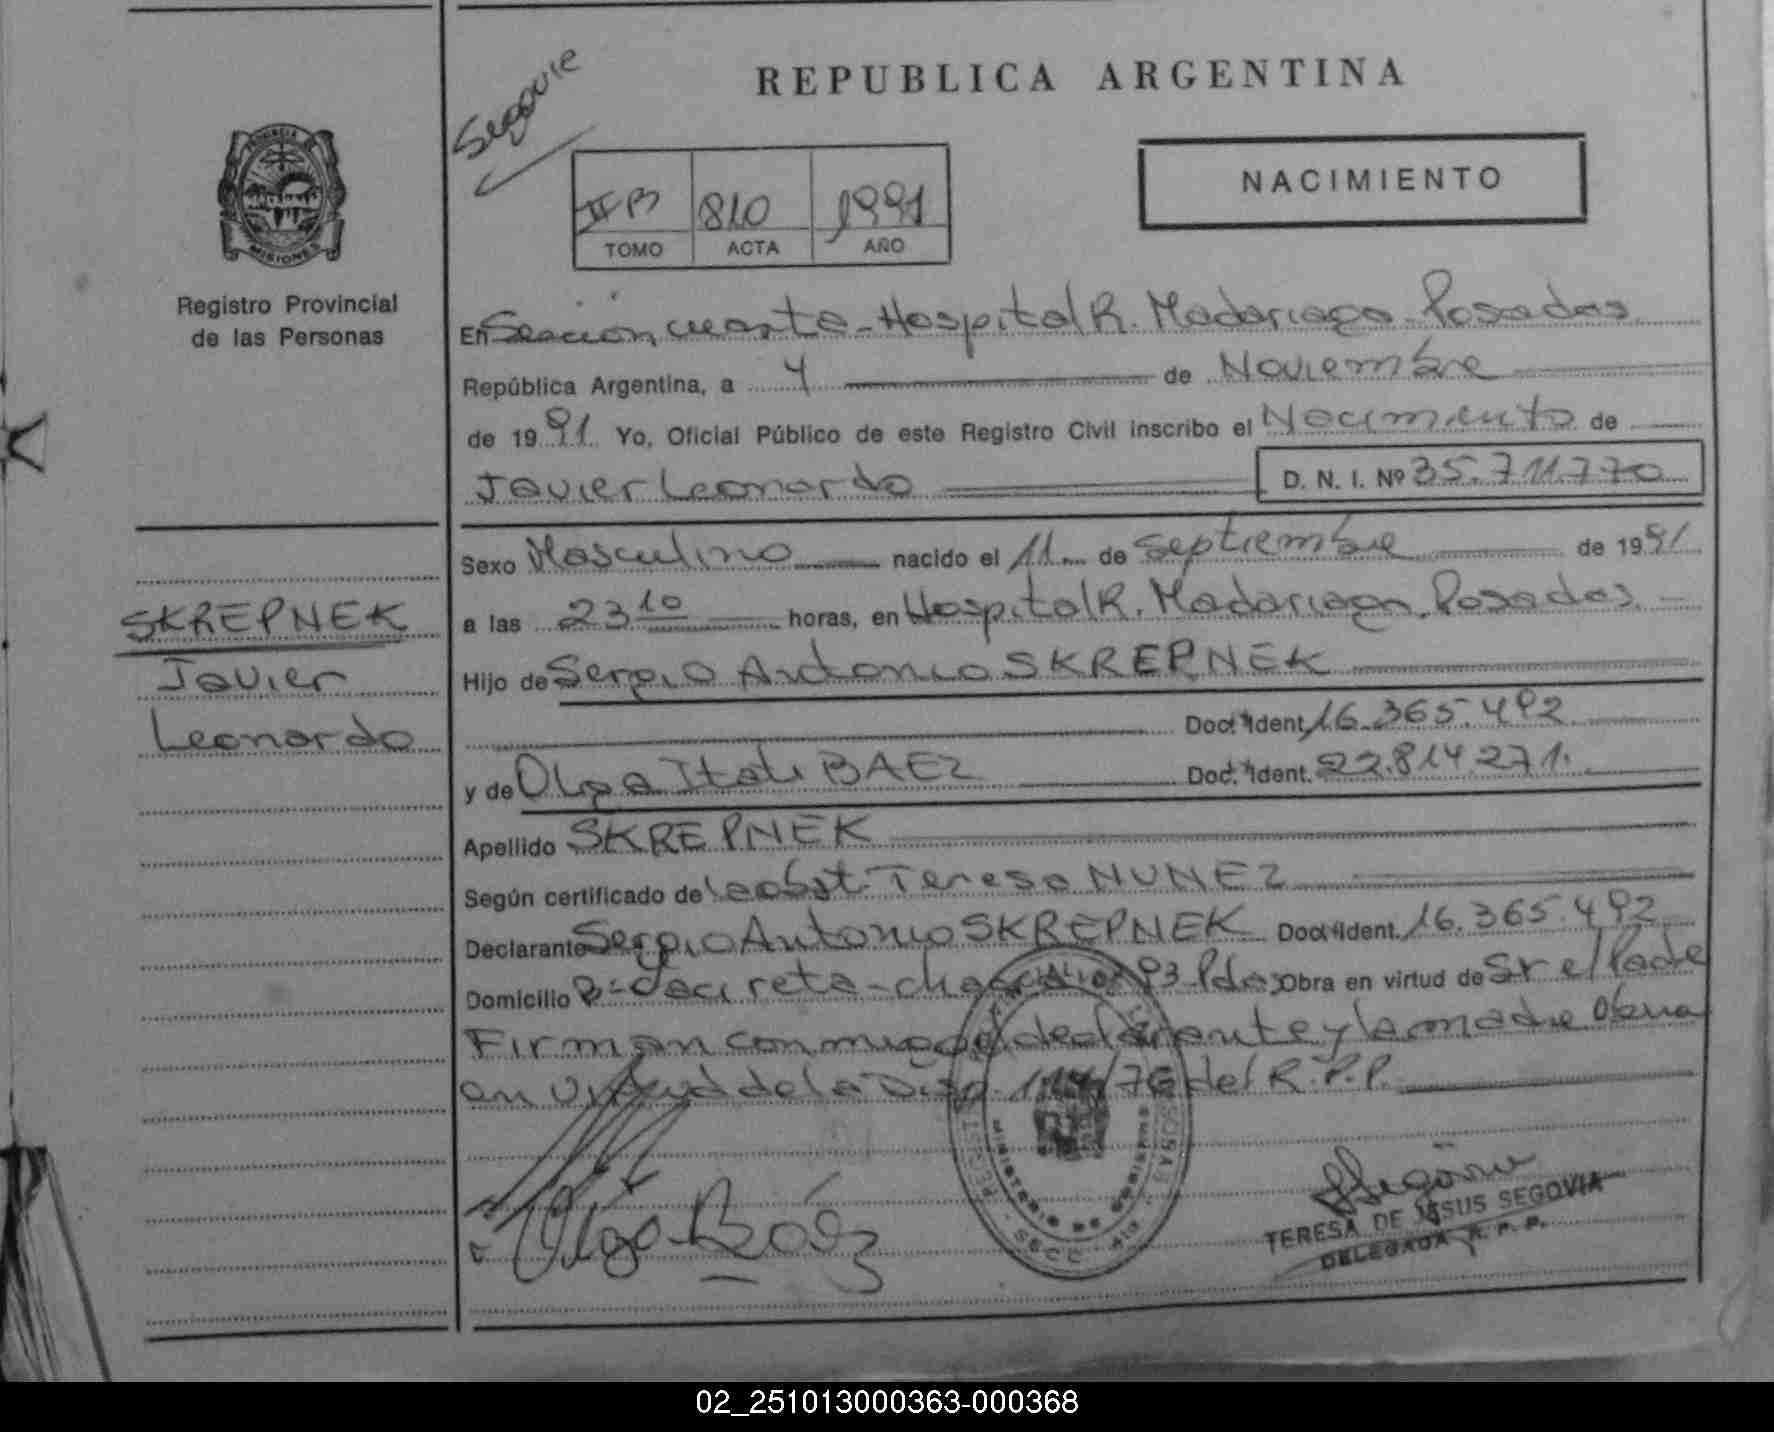 REPUBLICA ARGENTINA
Segovie
PROVINCIA
MISIONES
Registro Provincial
de las Personas
NACIMIENTO
810 1991
TOMO ACTA AÑO
En Sección cuarta - Hospital R. Madariaga - Posadas
República Argentina, a 4 de Noviembre
de 1991 Yo, Oficial Público de este Registro Civil inscribo el Nacimiento de
Javier Leonardo D. N. I. Nº 35.711.770
Sexo Masculino nacido el 11 de Septiembre de 1991
a las 23 10 horas, en Hospital R. Madariaga. Posadas
SKREPNEK
Javier
Leonardo
Hijo de Sergio Antonio SKREPNEK
Doc. Ident. 16.365.492
y de Olga Itati BAEZ Doc. Ident. 22.814.271.
Apellido SKREPNEK
Según certificado de la obst. Teresa NUNEZ
Declarante Sergio Antonio SKREPNEK Doc. Ident. 16.365.492
Domicilio Bº Yaci reta - 93 - Pdas Obra en virtud de Sr el Padre
Firman conmigo el declarante y la madre Obra
en virtud de la Disp. /76 del R.P.P.
Olga Báez
MINISTERIO DE GOBIERNO
Segovia
TERESA DE JESUS SEGOVIA
DELEGADA R. P. P.
02_251013000363-000368